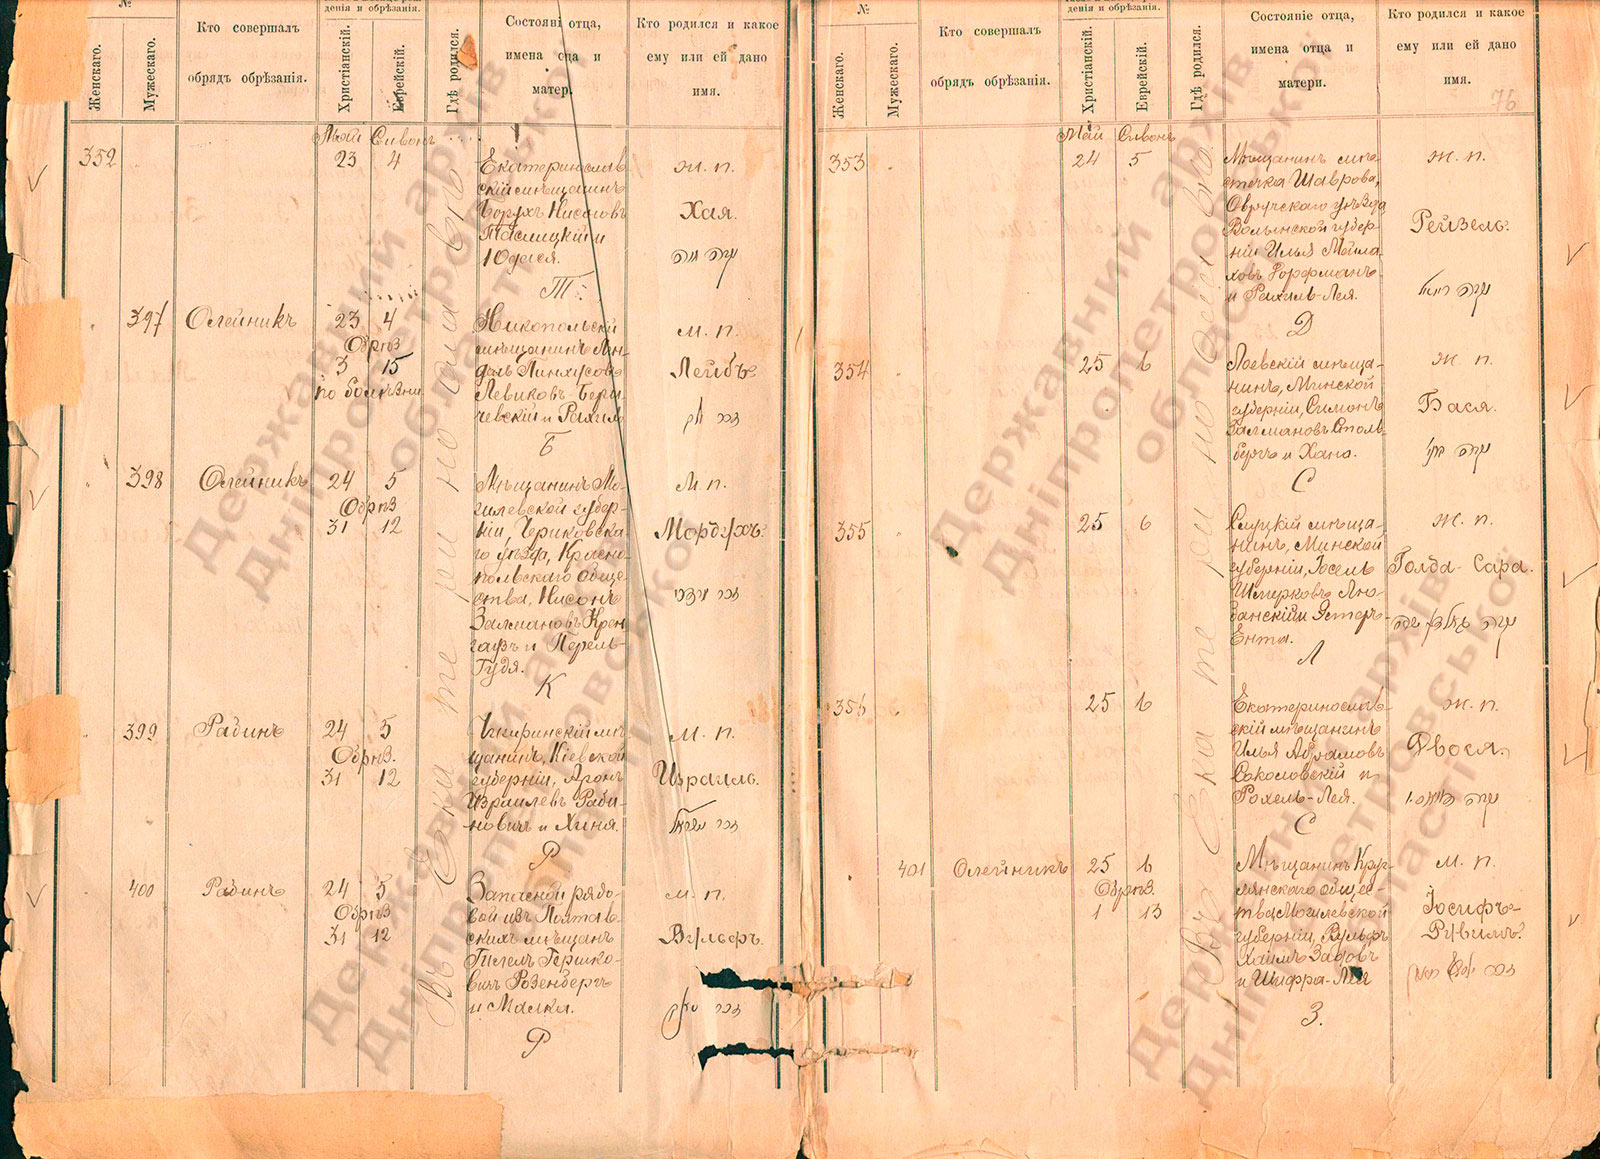 №
Женскаго.
Мужескаго.
Кто совершалъ
обрядъ обрѣзанія.
дения и обрѣзанія.
Христіанскій.
Еврейскій.
Гдѣ родился.
Состояні отца,
имена отца и
матер.
Кто родился и какое
ему или ей дано
имя.
Май Сивонъ
352
23 4
Екатеринослав
скій мѣщанинъ
Борухъ Нисоновъ
Таслицкій и
Юдася.
Т
Ж. п.
Хая.
397
Олейникъ
23 4
Обрѣз
3 15
по болѣзни
Никопольскій
мѣщанинъ
Пинхусовъ
Левиковъ Берди
чевскій и Рахиль
Б
М. п.
Лейбъ
398
Олейникъ
24 5
Обрѣз
31 12
Мѣщанинъ Мо-
гилевской губер-
ніи, Чериковска-
го уѣзд, Красно-
польскаго обще-
ства, Нисонъ
Залмановъ Крен-
гаузъ и Перель-
Гудя.
К
М. п.
Мордухъ.
399
Рабинъ
24 5
Обрѣз.
31 12
Чигиринскій мѣ-
щанинъ, Кіевской
губерніи, Аронъ
Израилевъ Раби-
новичъ и Хиня.
Р
М. п.
Израиль.
400
Рабинъ
24 5
Обрѣз
31 12
Запасной рядо-
вой изъ Полтав-
скихъ мѣщанъ
Гилель Гершко-
вичъ Розенбергъ
и Малка.
Р
М. п.
Вульфъ.
Въ Екатеринославѣ
№
Женскаго.
Мужескаго.
Кто совершалъ
обрядъ обрѣзанія.
дения и обрѣзанія.
Христіанскій.
Еврейскій.
Гдѣ родился.
Состояніе отца,
имена отца и
матери.
Кто родился и какое
ему или ей дано
имя.
76
Май Сивонъ
353
24 5
Мѣщанинъ мѣ-
стечка Шаврова,
Овручскаго уѣзда
Волынской губер
ніи Илья Мейла-
ховъ Горфманъ
и Рахиль-Лея.
Ж. п.
Рейзель.
354
25 6
Лоевскій мѣща-
нинъ, Минской
губерніи, Симонъ
Залмановъ Столь-
бергъ и Хана.
С
Ж. п.
Бася.
355
25 6
Слуцкій мѣща-
нинъ, Минской
губерніи, Іосель
Шмерковъ Лю-
банскій и Эстеръ-
Ента.
Л
Ж. п.
Голда-Сара.
356
25 6
Екатеринослав-
скій мѣщанинъ
Илья Абрамовъ
Соколовскій и
Рохель-Лея.
С
Ж. п.
Двося.
401
Олейникъ
25 6
Обрѣз.
1 13
Мѣщанинъ Круг-
лянскаго общес-
тва Могилевской
губерніи, Вульфъ
Хаимъ Задовъ
и Шифра-Лея
З.
М. п.
Іосифъ-
Рувимъ.
Державний архів
Дніпропетровської
області